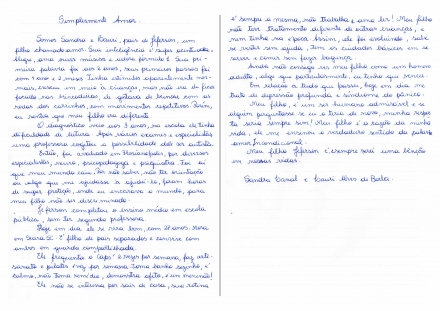 Simplesmente Amor.
Somos Sandra e Cauí, pais de Jeferson, um
filho chamado amor. Sua inteligência é super aguçada.
blogs, ama ouvir música e adora fórmula 1. Sua pri-
meira palavra foi aos 2 anos, seus primeiros passos foi
com 1 ano e 2 meses. Tinha atitudes aparentemente nor-
mais, cresceu em meio às crianças, mas não era de ficar
focado nas brincadeiras, só gostava de brincar com as
rodas dos carrinhos, com movimentos repetitivos. Assim,
eu sentia que meu filho era diferente.
O diagnóstico veio aos 8 anos, na escola ele tinha
dificuldade de leitura. Após vários exames e especialistas
uma professora cogitou a possibilidade dele ser autista.
Então, foi avaliado em Florianópolis, por diversos
especialistas, neuro, psicopedagoga e psiquiatra. Foi aí
que meu mundo caiu. Por não saber, não ter orientação
ou algo que me ajudasse a ajudá-lo, foram horas
de super proteção, onde eu encarava o mundo, para
meu filho não ser discriminado.
Jeferson completou o ensino médio em escola
pública, sem ter segundo professora.
Hoje em dia ele se vira bem, com 28 anos. Mora
em É filho de pais separados e convive com
ambos em guarda compartilhada.
Ele frequenta o Caps 2 vezes por semana, faz arte-
sanato e pilates 1 vez por semana. Toma banho sozinho, é
calmo, não toma remédio, demonstra afeto, é um menino!
Ele não se interessa por sair de casa, sua rotina
é sempre a mesma, não trabalha e ama ler! Meu filho
não teve tratamento diferente de outras crianças, e
nem tinha na época. Assim, ele foi evoluindo, sabe
se vestir sem ajuda, tem os cuidados básicos em se
servir e comer sem fazer bagunça.
Ainda não consigo ver meu filho como um homem
autista, algo que particularmente, eu tinha que vencer.
Em relação a tudo que passei, hoje em dia me
trato de depressão profunda e síndrome do pânico.
Meu filho, é um ser humano admirável e se
alguém perguntasse se eu o teria de novo, minha respos-
ta seria sempre sim! Meu filho é a razão da minha
vida, ele me ensinou o verdadeiro sentido da palavra
amor Incondicional.
Meu filho Jeferson é e sempre será uma benção
em nossas vidas.
Sandra e Cauí